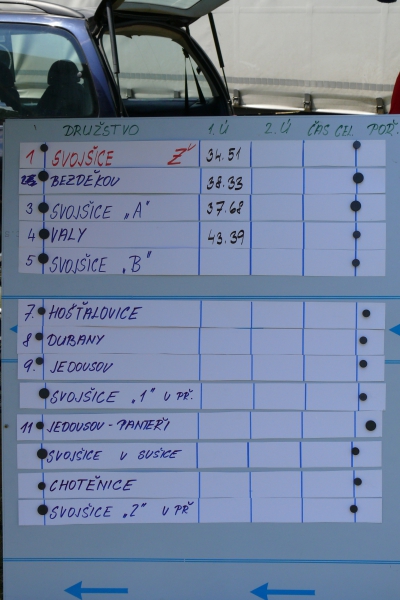 DRUŽSTVO 1.Ú 2.Ú ČAS CEL. POŘ.
1 SVOJŠICE Ž 34.51
BEZDĚKOV 38.33
3 SVOJŠICE „A" 37.68
4 VALY 43.39
5 SVOJŠICE „B"
7. HOŠŤALOVICE
8 DUBANY
9. JEDOUSOV
SVOJŠICE „1" U PŘ.
11 JEDOUSOV - PANTEŘI
SVOJŠICE U SUŠICE
CHOTĚNICE
SVOJŠICE „2" U PŘ